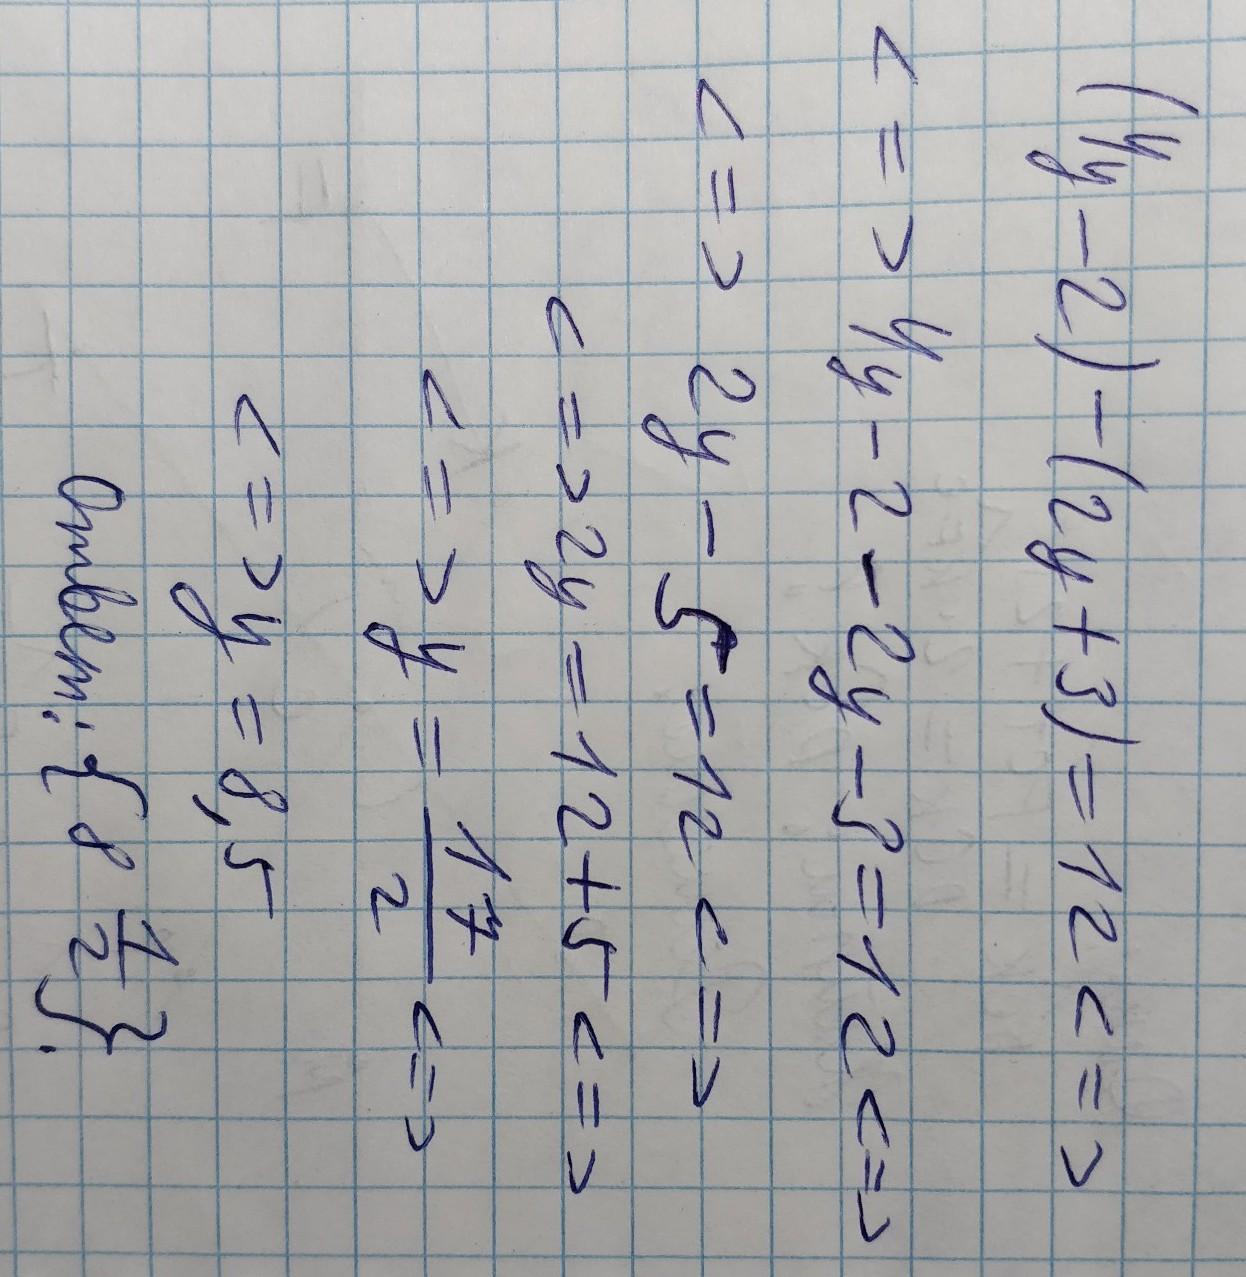 (4y-2)-(2y+3)=12 <=>
<=> 4y-2-2y-3=12 <=>
<=> 2y-5=12 <=>
<=> 2y=12+5 <=>
<=> y=17/2 <=>
<=> y=8,5
Ответ: {8 1/2}.